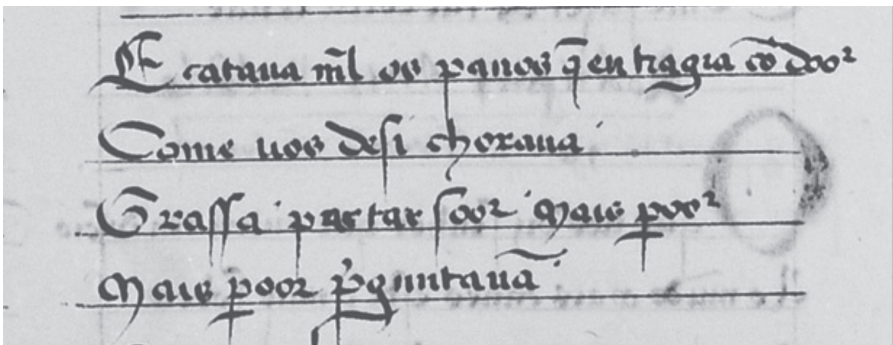 E cataua ml̃ os panos q̃ eu tragia cõ door
Come uos desi choraua
Grassa partar soor mais por
Mais poor p̃guntauã